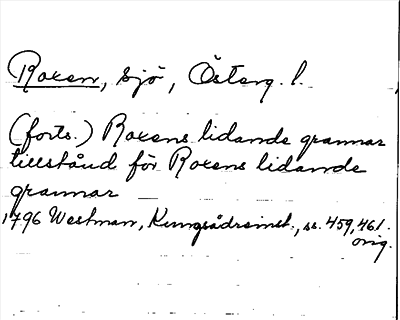 Roxen, sjö, Österg. l.
(forts.) Roxens lidande grannar
tillstånd för Roxens lidande
grannar
1796 Westman, Kungsådreinst., ss. 459, 461.
orig.